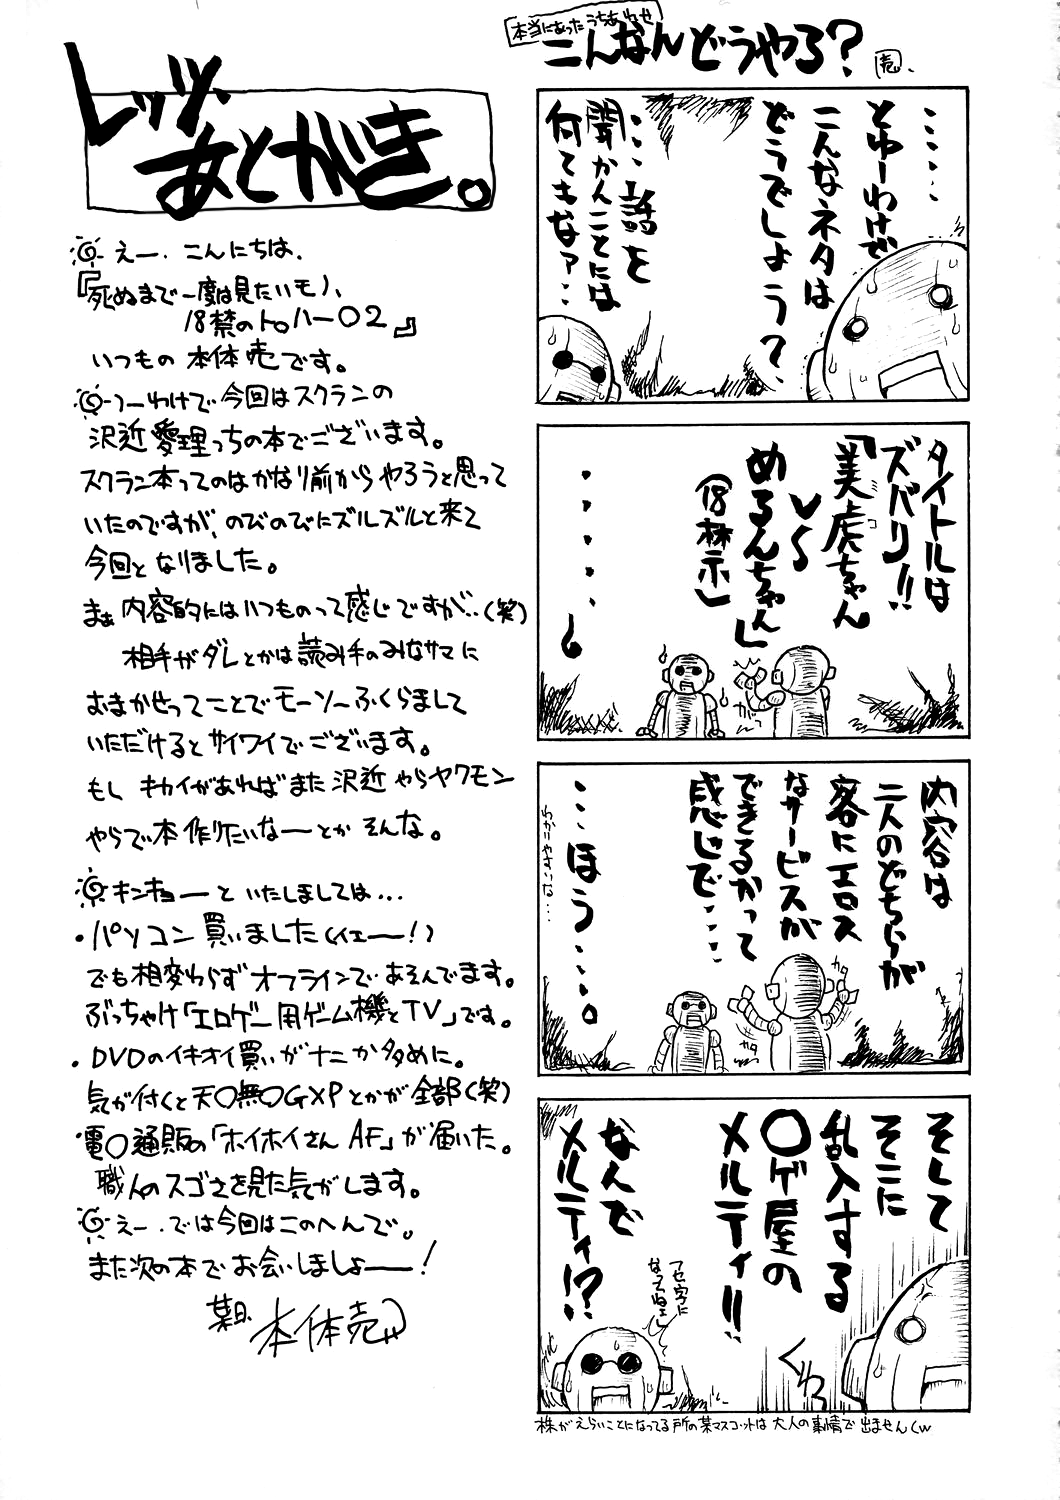 レッツ、
あとがき。
えー、こんにちは、
『死ぬまで一度は見たいモノ、
18禁のトロハー〇2』
いつもの 本体売です。
つーわけで今回はスクランの
沢近愛理っちの本でございます。
スクラン本ってのはかなり前からやろうと思って
いたのですが、のびのびにズルズルと来て
今回となりました。
まぁ内容的にはいつものって感じですが‥(笑)
相手がダレとかは読み手のみなサマに
おまかせってことでモーソーふくらまして
いただけるとサイワイでございます。
もし キカイがあればまた沢近やらヤクモン
やらで本作りたいなーとかそんな。
キンキョーといたしましては…
・パソコン買いました(イェー!)
でも相変わらずオフラインであそんでます。
ぶっちゃけ「エロゲー用ゲーム機とTV」です。
・DVDのイキオイ買いがナニか多めに。
気が付くと天〇無〇GXPとかが全部(笑)
電〇通販の「ホイホイさん AF」が届いた。
職人のスゴさを見た気がします。
えー、では今回はこのへんで。
また次の本でお会いしましょー!
某日、本体売
本当にあったうちあわせ
こんなんどうやる?
売
‥‥‥
とゆーわけで
こんなネタは
どうでしょう?
‥‥話を
聞かんことには
何てもなァ…
タイトルは
ズバリ!!
「美虎ちゃん
コ
VS
めるんちゃん」
(18禁)
・・・・・。
内容は
二人のどちらが
客にエロス
なサービスが
できるかって
感じで‥‥
‥‥ほう‥‥。
わかりやすいな…
ガッ
カタ
カタ
そして
そこに
乱入する
〇ゲ屋の
メルティ!!
なんで
メルティ!?
フセ字に
なってねェ!
ぐわっ
株がえらいことになってる所の某マスコットは大人の事情で出ませんくw